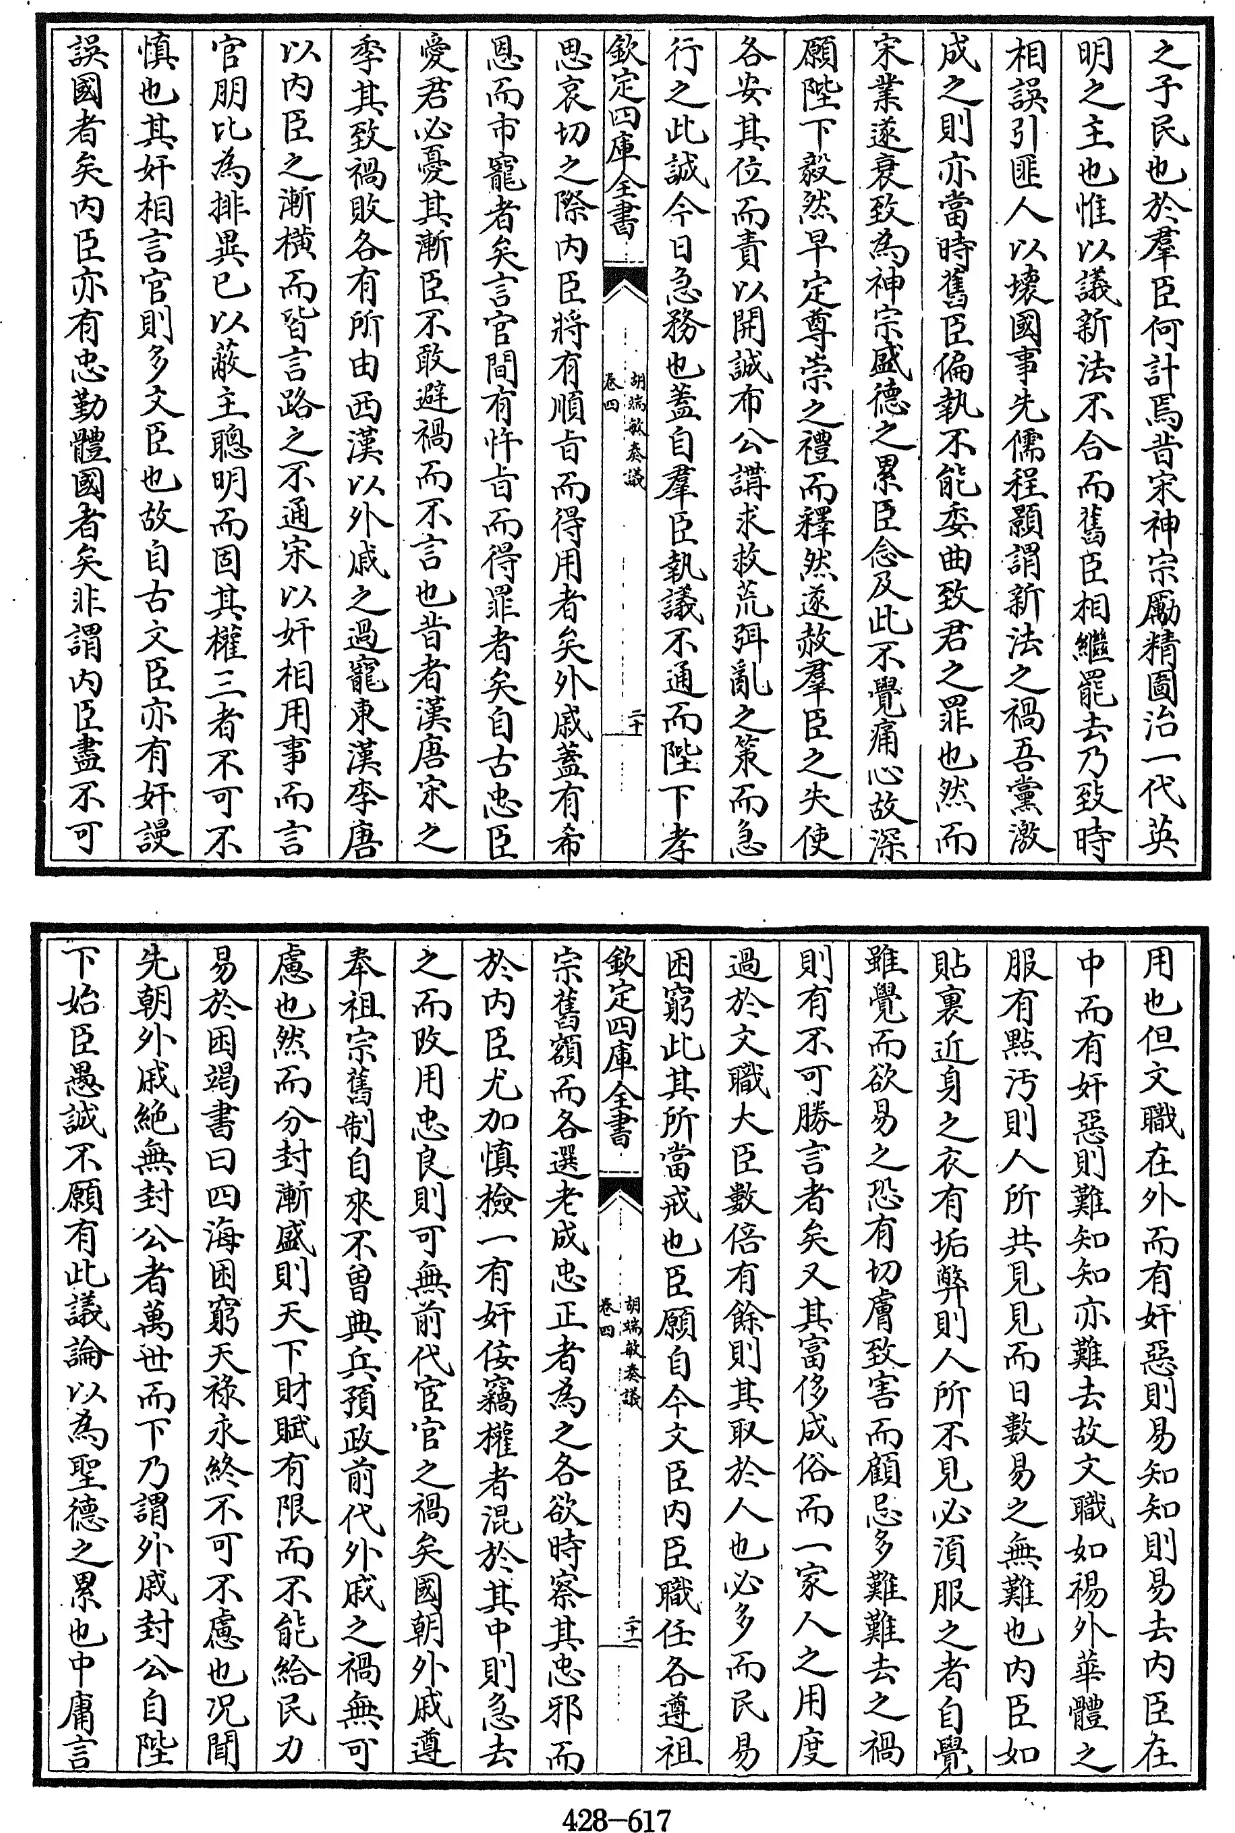 之子民也於羣臣何計焉昔宋神宗勵精圖治一代英
明之主也惟以議新法不合而舊臣相繼罷去乃致時
相誤引匪人以壞國事先儒程顥謂新法之禍吾黨激
成之則亦當時舊臣偏執不能委曲致君之罪也然而
宋業遂衰致為神宗盛德之累臣念及此不覺痛心故深
願陛下毅然早定尊崇之禮而釋然遂赦羣臣之失使
各安其位而責以開誠布公講求救荒弭亂之策而急
行之此誠今日急務也蓋自羣臣執議不通而陛下孝
欽定四庫全書
胡端敏奏議
卷四
二十
思哀切之際內臣將有順旨而得用者矣外戚蓋有希
恩而市寵者矣言官間有忤旨而得罪者矣自古忠臣
愛君必憂其漸臣不敢避禍而不言也昔者漢唐宋之
季其致禍敗各有所由西漢以外戚之過寵東漢季唐
以内臣之漸橫而皆言路之不通宋以奸相用事而言
官朋比為排異已以蔽主聰明而固其權三者不可不
慎也其奸相言官則多文臣也故自古文臣亦有奸謾
誤國者矣内臣亦有忠勤體國者矣非謂内臣盡不可
用也但文職在外而有奸惡則易知知則易去内臣在
中而有奸惡則難知知亦難去故文職如裼外華體之
服有點汚則人所共見見而日數易之無難也内臣如
貼裏近身之衣有垢弊則人所不見必須服之者自覺
雖覺而欲易之恐有切膚致害而顧忌多難難去之禍
則有不可勝言者矣又其富侈成俗而一家人之用度
過於文職大臣數倍有餘則其取於人也必多而民易
困窮此其所當戒也臣願自今文臣内臣職任各遵祖
欽定四庫全書
胡端敏奏議
卷四
二十一
宗舊額而各選老成忠正者為之各欲時察其忠邪而
於内臣尤加慎檢一有奸佞竊權者混於其中則急去
之而改用忠良則可無前代宦官之禍矣國朝外戚遵
奉祖宗舊制自來不曾典兵預政前代外戚之禍無可
慮也然而分封漸盛則天下財賦有限而不能給民力
易於困竭書曰四海困窮天祿永終不可不慮也况聞
先朝外戚絶無封公者萬世而下乃謂外戚封公自陛
下始臣愚誠不願有此議論以為聖德之累也中庸言
428-617